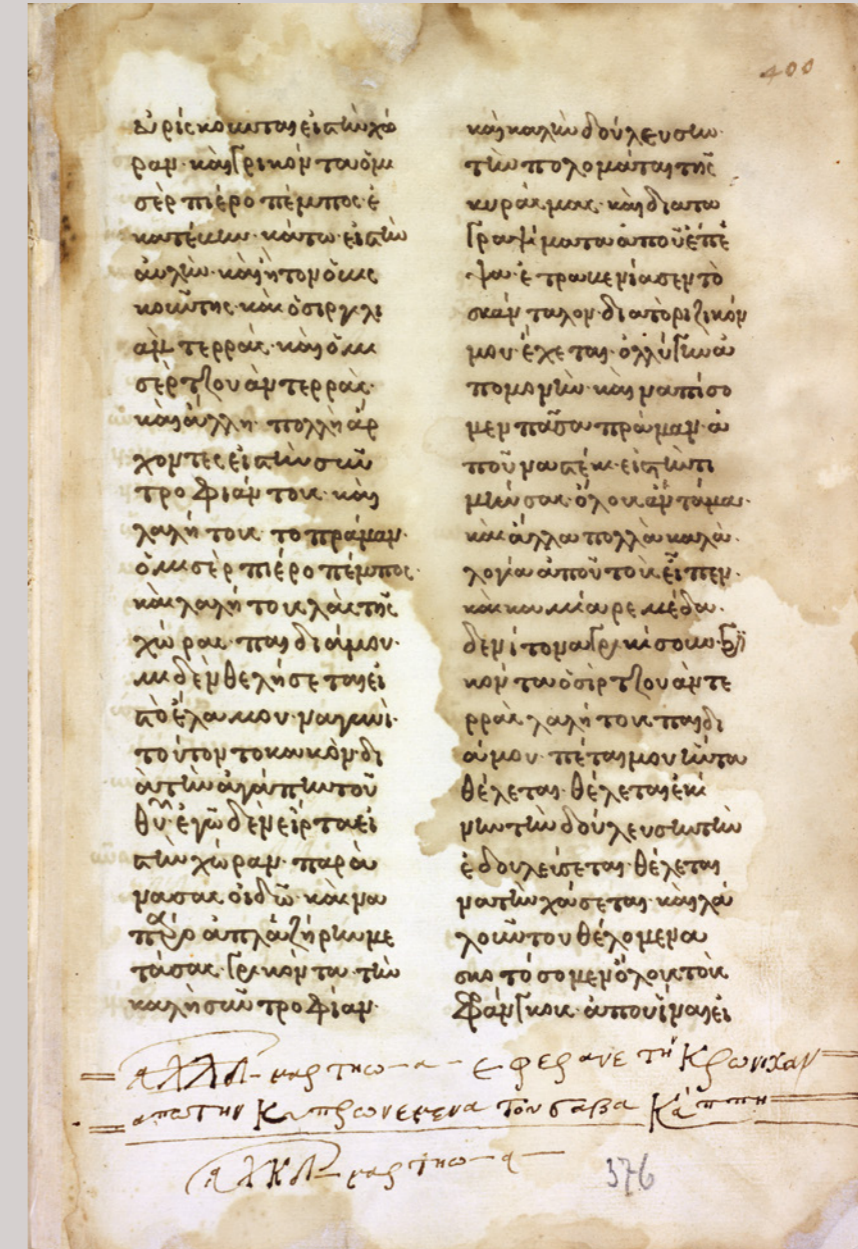 ἐυρίσκουνται εἰς τὴν χώ
ραν· καὶ γρικόντα ὁ μι
σὲρ πιέρο πέμπος· ἐ
κατέκην· κάτω· εἰς τὴν
ἀυλὴν· καὶ ἦτον
κουύτης· καὶ ὁ σὶρ γγλι
ὰμ τερρὰς· καὶ ὁ μι
σὲρ τζουὰμ τερρὰς·
καὶ ἄλλη· πολλὴ ἄρ
χοντες εἰς τὴν συν
τροφίαν τους· καὶ
λαλῆ τους· τὸ πράμαν·
ὁ μισὲρ πιέρο πέμπος·
καὶ λαλῆ τους λὰς τῆς
χώρας· παιδιάμου·
μιδὲν θελήσεται εἰ
ς τὸ ἔλα μου· να γινῆ·
τοῦτον το κακὸν· δι
ὰ τὴν ἀγάπην τοῦ
θυ· ἐγὼ δὲν εἶρτα εἰ
ς τὴν χώραν· παρὰ
νασας οἰδῶ· καὶ να
πάρο ἀπλαζήριν με
τάσας· γρικόντα· τὴν
καλὴ συντροφίαν·
καὶ καλὴν δούλευσιν·
τὴν πολομάται τῆς
κυράς μας· καὶ διὰ τα
γράμματα ἀποῦ ἔπε
ψα· ἐτρακενίασεν τὸ
σκάνταλον· διατὸ ριζικόν
μου· ἔχεται· ὀλλύγην ὑ
πομονὴν· καὶ να πίσο
μεν πᾶσα πράμαν· ἀ
ποῦ να στέκι· εἰς τὴν τι
μήν σας· ὅλους ἀντάμα·
καὶ ἄλλα πολλὰ καλὰ·
λογία ἀποῦ τους εἶπεν·
καὶ καμμία ρεμέδα·
δεν ίτο να γρικίσουν· γρι
κοντα ὁ σὶρ τζουὰν τε
ρρὰς λαλῆ τους παιδι
ά μου· πέται μου εἶντα
θέλεται· θέλεται ἐκί
νην τὴν δούλευσιν τὴν
ἐδουλεύσεται· θέλεται
να τὴν χάσεται· καὶ λα
λοῦν του θέλομεν α
σκοτόσομεν ὅλους τοὺς
φράνγκους ἀποῦ ἶναι εἰ
μαρτηω α εφερανε τη Κρωνικαν
απο την τον σαβα Καππη
μαρτηω α
376
400